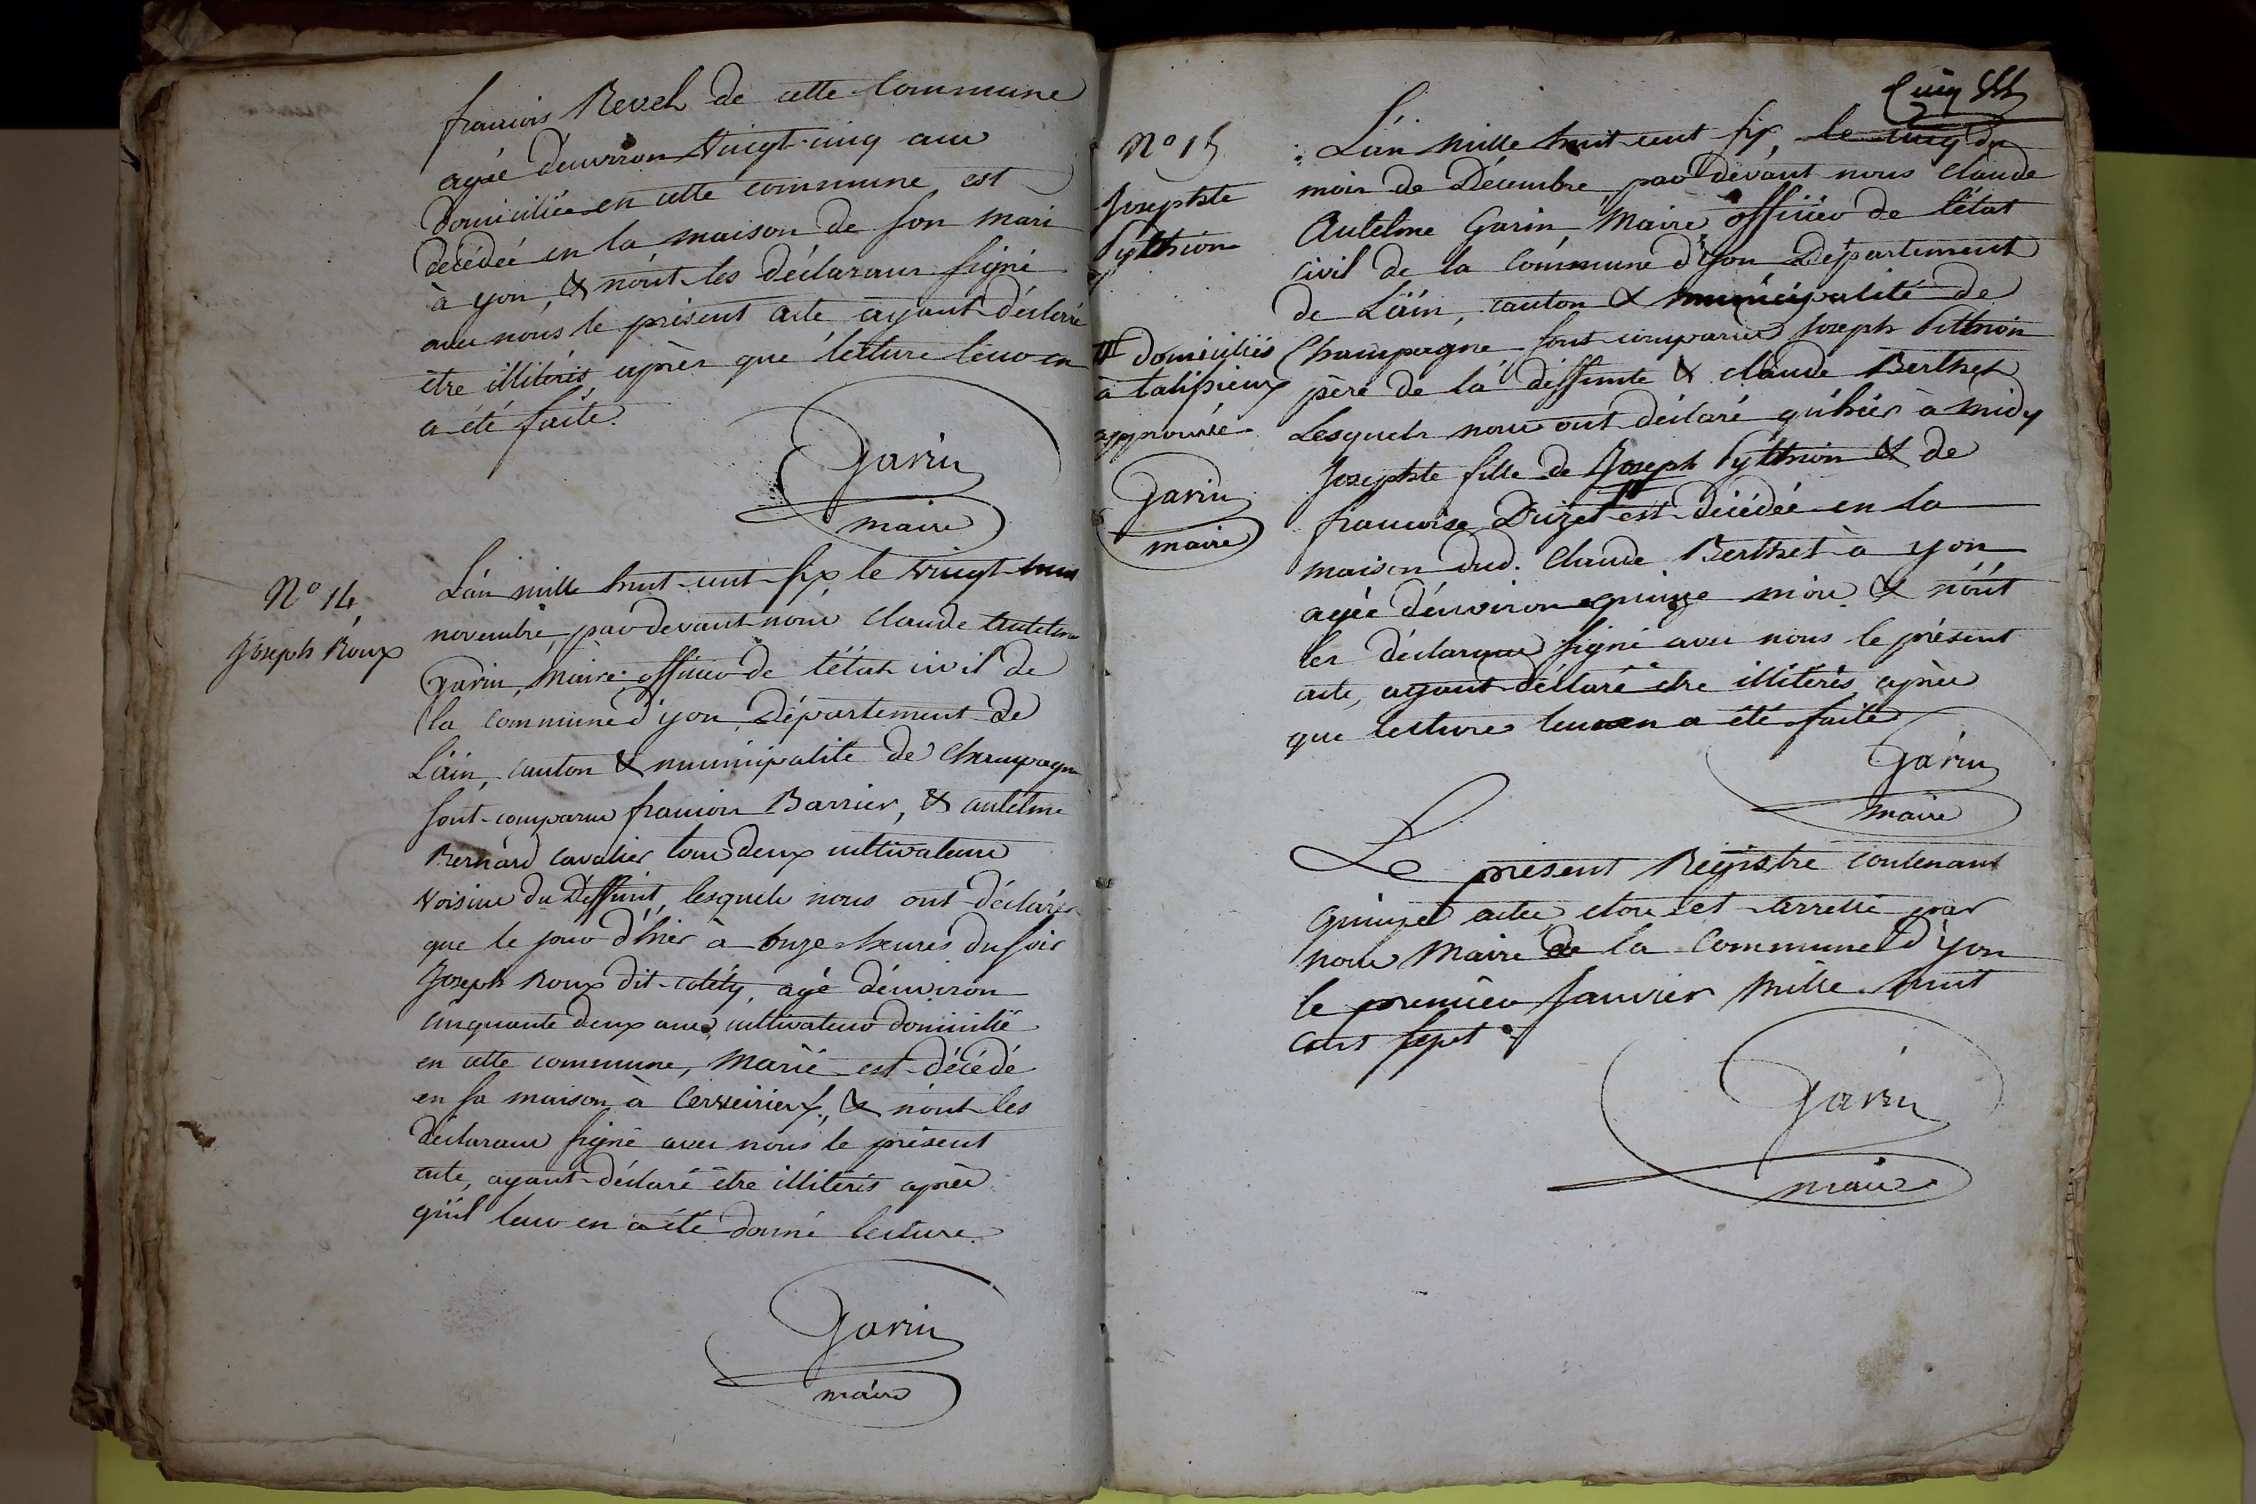 francois Revel de cette Commune
agée d'environ vingt-cinq ans
domiciliée en cette commune, est
décédée en la maison de son mari
à yon, & n'ont les déclarans signé
avec nous le présent acte ayant déclaré
être illitérés, après que lecture leur en
a été faite.
Garin
maire
N° 14
Joseph Roux
L'an mille huit cent six, le vingt
novembre, par devant nous Claude Antelme
Garin, Maire officier de l'état civil de
la commune d'yon, Département de
L'ain, canton & municipalité de Champagne
sont comparus francois Barrier, & antelme
Bernard Cavalier tous deux cultivateurs
voisins du Deffunt, lesquels nous ont déclaré
que le jour d'hier à onze heures du soir
Joseph Roux dit agé d'environ
Cinquante deux ans, cultivateur domicilié
en cette commune, Marié est décédé
en sa maison à Cerveirieux, & n'ont les
déclarans signé avec nous le présent
acte, ayant déclaré être illitérés après
qu'il leur en a été donné lecture.
Garin
maire
Cinq
N° 15
Josephte
Pythion
L'an Mille huit cent six, le cinq du
mois de Décembre, par devant nous Claude
Antelme Garin Maire, officier de l'état
civil de la Commune d'yon Département
de L'ain, canton & municipalité de
Champagne sont comparus Joseph Pithion
père de la deffunte & claude Berthet
Lesquels nous ont déclaré qu'hier à midy
Josephte fille de Joseph Pythion & de
francoise Duzet est décédée en la
maison dud. Claude Berthet à yon
agée d'environ quinze mois & n'ont
les déclarans signé avec nous le présent
acte, ayant déclaré être illitérés, après
que lecture leur en a été faite
Garin
maire
domiciliés
à talissieux
approuvé
Garin
maire
Le présent Registre contenant
quinze actes clos et arretté par
nous Maire de la Commune d'yon
le premier Janvier Mille huit
cent sept.
Garin
maire